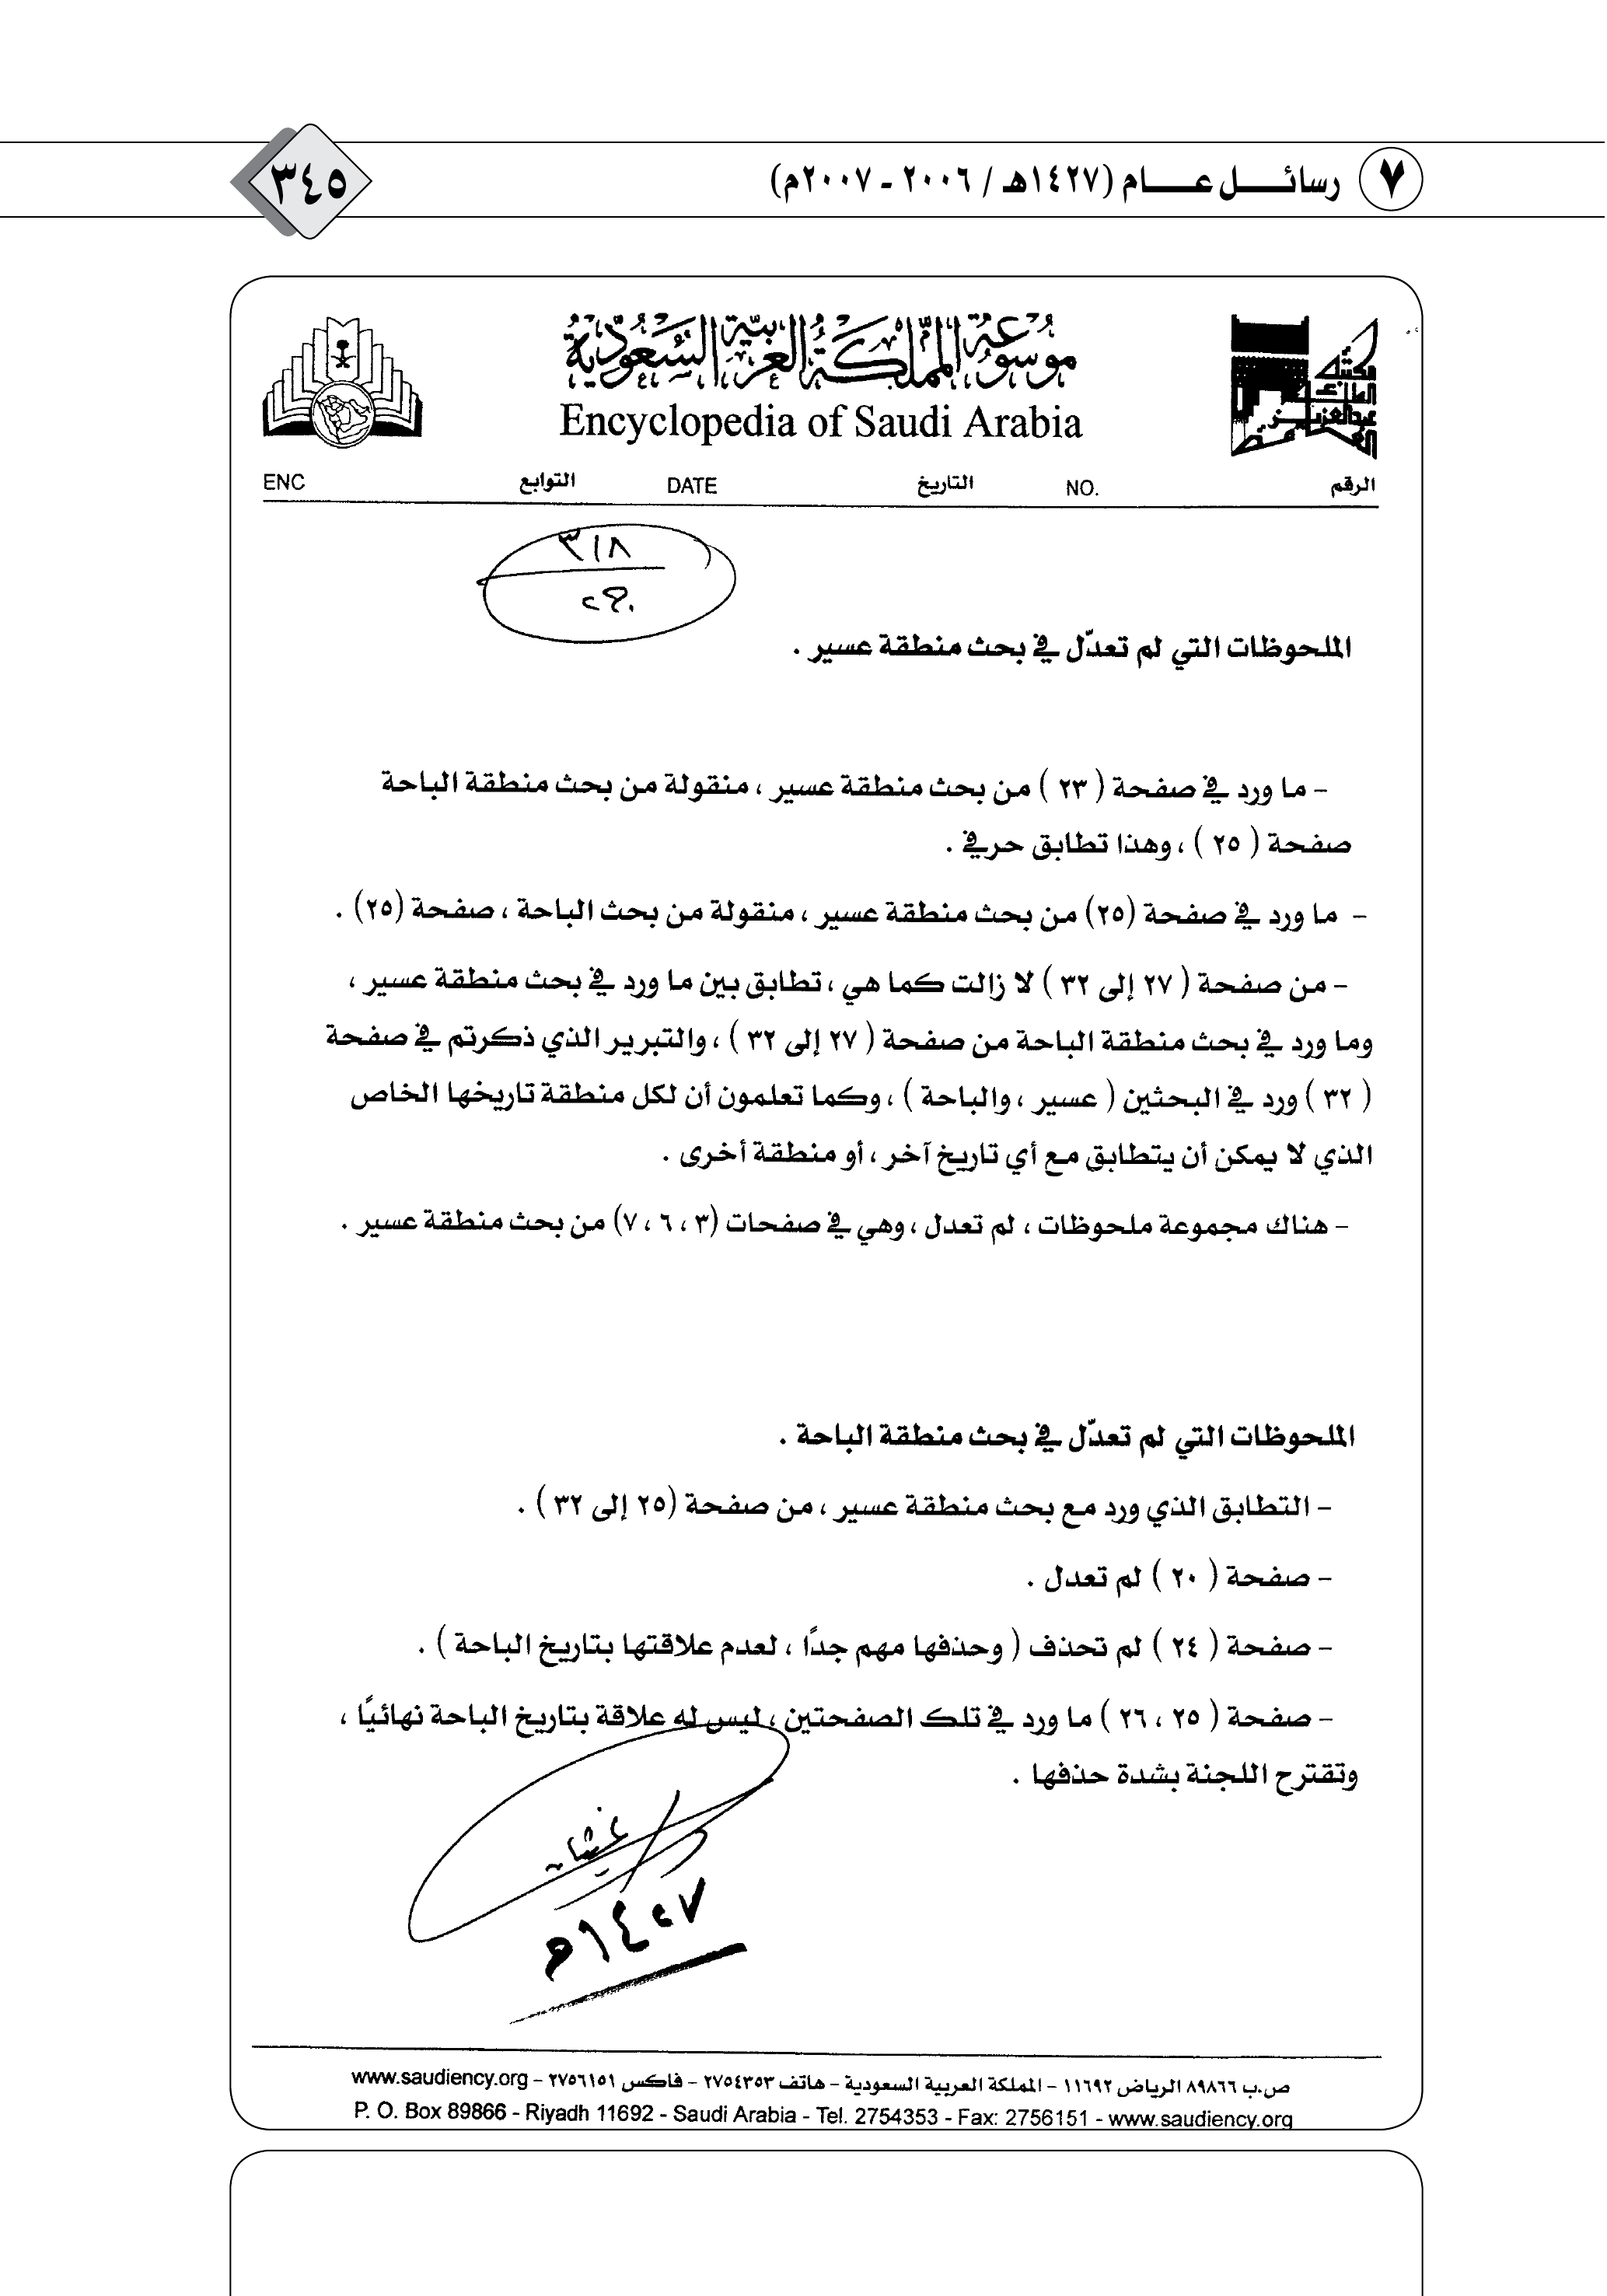 ٧ رسائــــل عــــــام (١٤٢٧هـ / ٢٠٠٦ ـ ٢٠٠٧م)
٣٤٥
موسوعة المملكة العربية السعودية
Encyclopedia of Saudi Arabia
مكتبة
الملك
عبدالعزيز
العامة
الرقم NO. التاريخ DATE التوابع ENC
٣١٨
الملحوظات التي لم تعدّل في بحث منطقة عسير .
– ما ورد في صفحة ( ٢٣ ) من بحث منطقة عسير ، منقولة من بحث منطقة الباحة
صفحة ( ٢٥ ) ، وهذا تطابق حرفي .
– ما ورد في صفحة (٢٥) من بحث منطقة عسير ، منقولة من بحث الباحة ، صفحة (٢٥) .
– من صفحة ( ٢٧ إلى ٣٢ ) لا زالت كما هي ، تطابق بين ما ورد في بحث منطقة عسير ،
وما ورد في بحث منطقة الباحة من صفحة ( ٢٧ إلى ٣٢ ) ، والتبرير الذي ذكرتم في صفحة
( ٣٢ ) ورد في البحثين ( عسير ، والباحة ) ، وكما تعلمون أن لكل منطقة تاريخها الخاص
الذي لا يمكن أن يتطابق مع أي تاريخ آخر ، أو منطقة أخرى .
– هناك مجموعة ملحوظات ، لم تعدل ، وهي في صفحات (٣ ، ٦ ، ٧) من بحث منطقة عسير .
الملحوظات التي لم تعدّل في بحث منطقة الباحة .
– التطابق الذي ورد مع بحث منطقة عسير ، من صفحة (٢٥ إلى ٣٢ ) .
– صفحة ( ٢٠ ) لم تعدل .
– صفحة ( ٢٤ ) لم تحذف ( وحذفها مهم جدًا ، لعدم علاقتها بتاريخ الباحة ) .
– صفحة ( ٢٥ ، ٢٦ ) ما ورد في تلك الصفحتين ، ليس له علاقة بتاريخ الباحة نهائيًا ،
وتقترح اللجنة بشدة حذفها .
١٤٢٧هـ
ص.ب ٨٩٨٦٦ الرياض ١١٦٩٢ – المملكة العربية السعودية – هاتف ٢٧٥٤٣٥٣ – فاكس ٢٧٥٦١٥١ – www.saudiency.org
P. O. Box 89866 - Riyadh 11692 - Saudi Arabia - Tel. 2754353 - Fax: 2756151 - www.saudiency.org